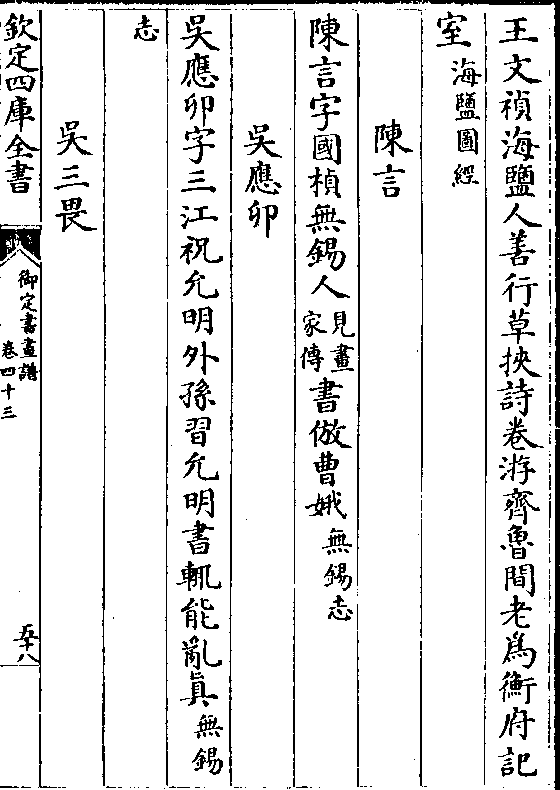 王文禎海鹽人善行草挾詩卷游齊魯間老為衡府記
室海鹽圖經
陳言
陳言字國楨無錫人見畫家傳書倣曹娥無錫志
吳應卯
吳應卯字三江祝允明外孫習允明書輒能亂真無錫
志
吳三畏
欽定四庫全書
御定書畫譜
卷四十三
五十八